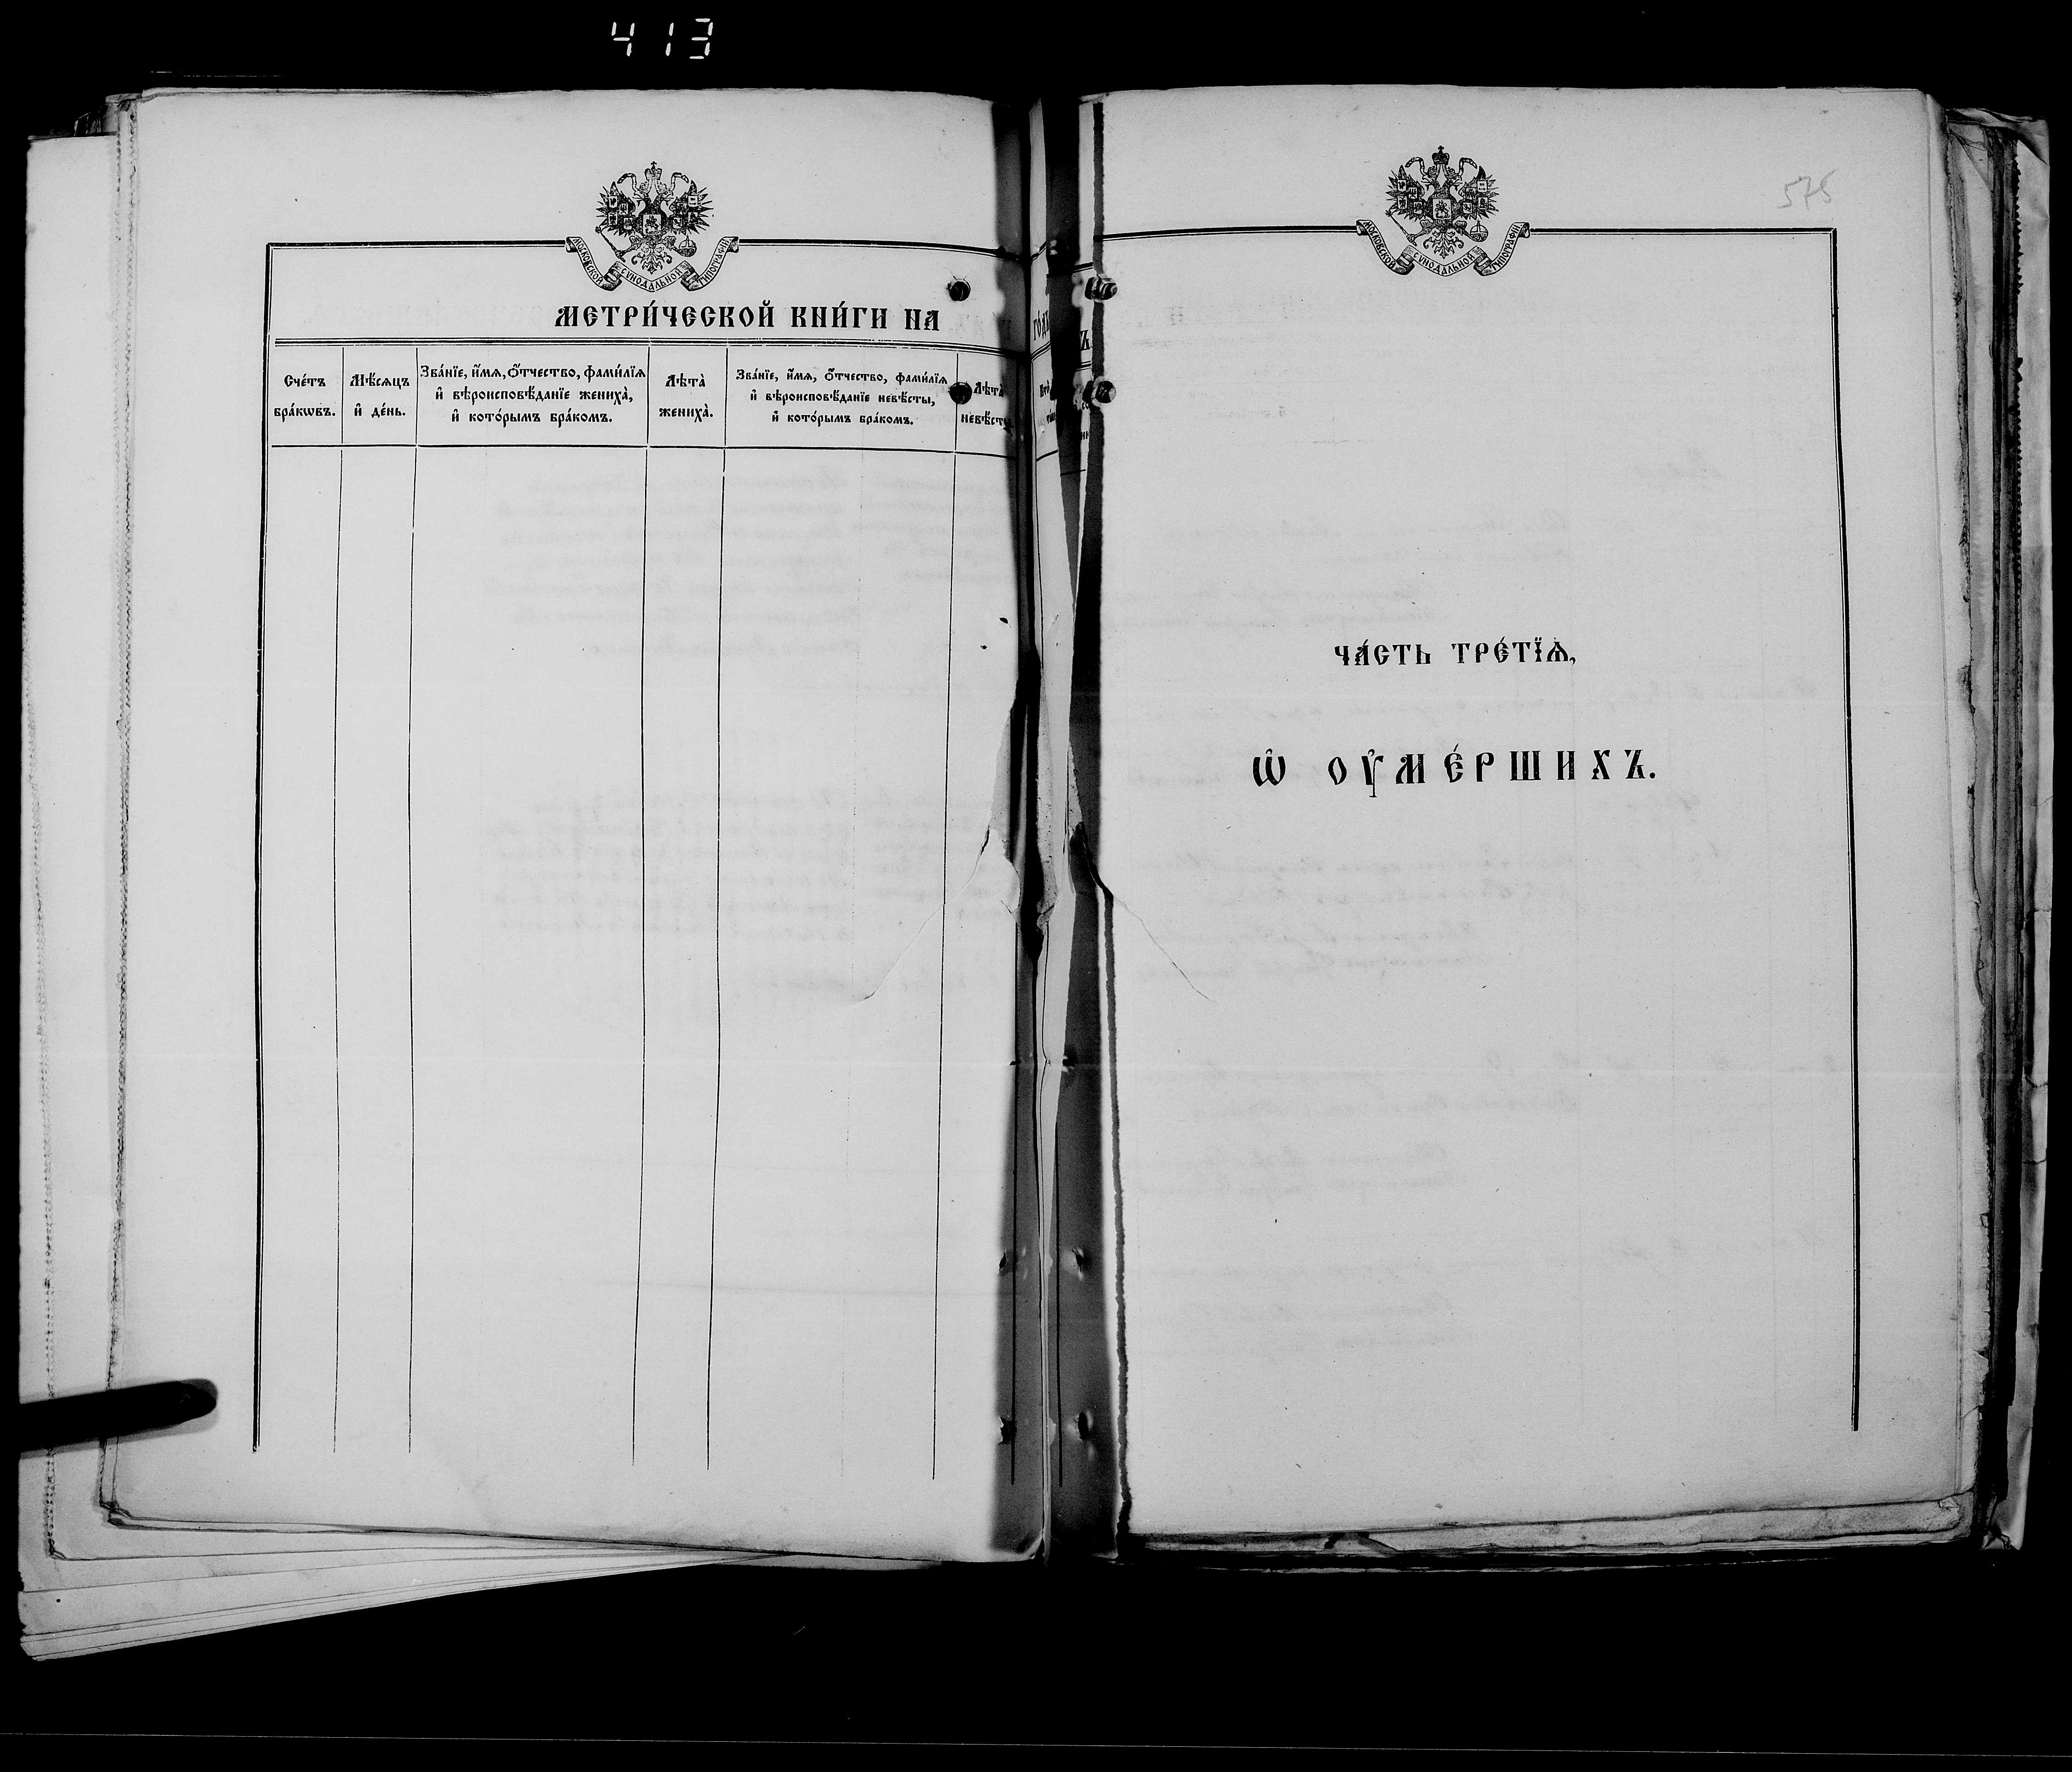 413
МОСКОВСКОЙ СѴНОДАЛЬНОЙ ТИПОГРАФІИ
МЕТРИ́ЧЕСКОЙ КНИ́ГИ НА
Сче́тъ бра́кѡвъ.
Мѣ́сѧцъ и҆ де́нь.
Зва́нїе, и҆́мѧ, ѻ҆́тчество, фами́лїѧ
и҆ вѣроисповѣ́данїе жениха̀,
и҆ кото́рымъ бра́комъ.
Лѣта̀ жениха̀.
Зва́нїе, и҆́мѧ, ѻ҆́тчество, фами́лїѧ
и҆ вѣроисповѣ́данїе невѣ́сты,
и҆ кото́рымъ бра́комъ.
Лѣта̀
невѣ́ст
575
МОСКОВСКОЙ СѴНОДАЛЬНОЙ ТИПОГРАФІИ
ЧА́СТЬ ТРЕ́ТЇѦ,
Ѡ҆ ОУ҆МЕ́РШИХЪ.